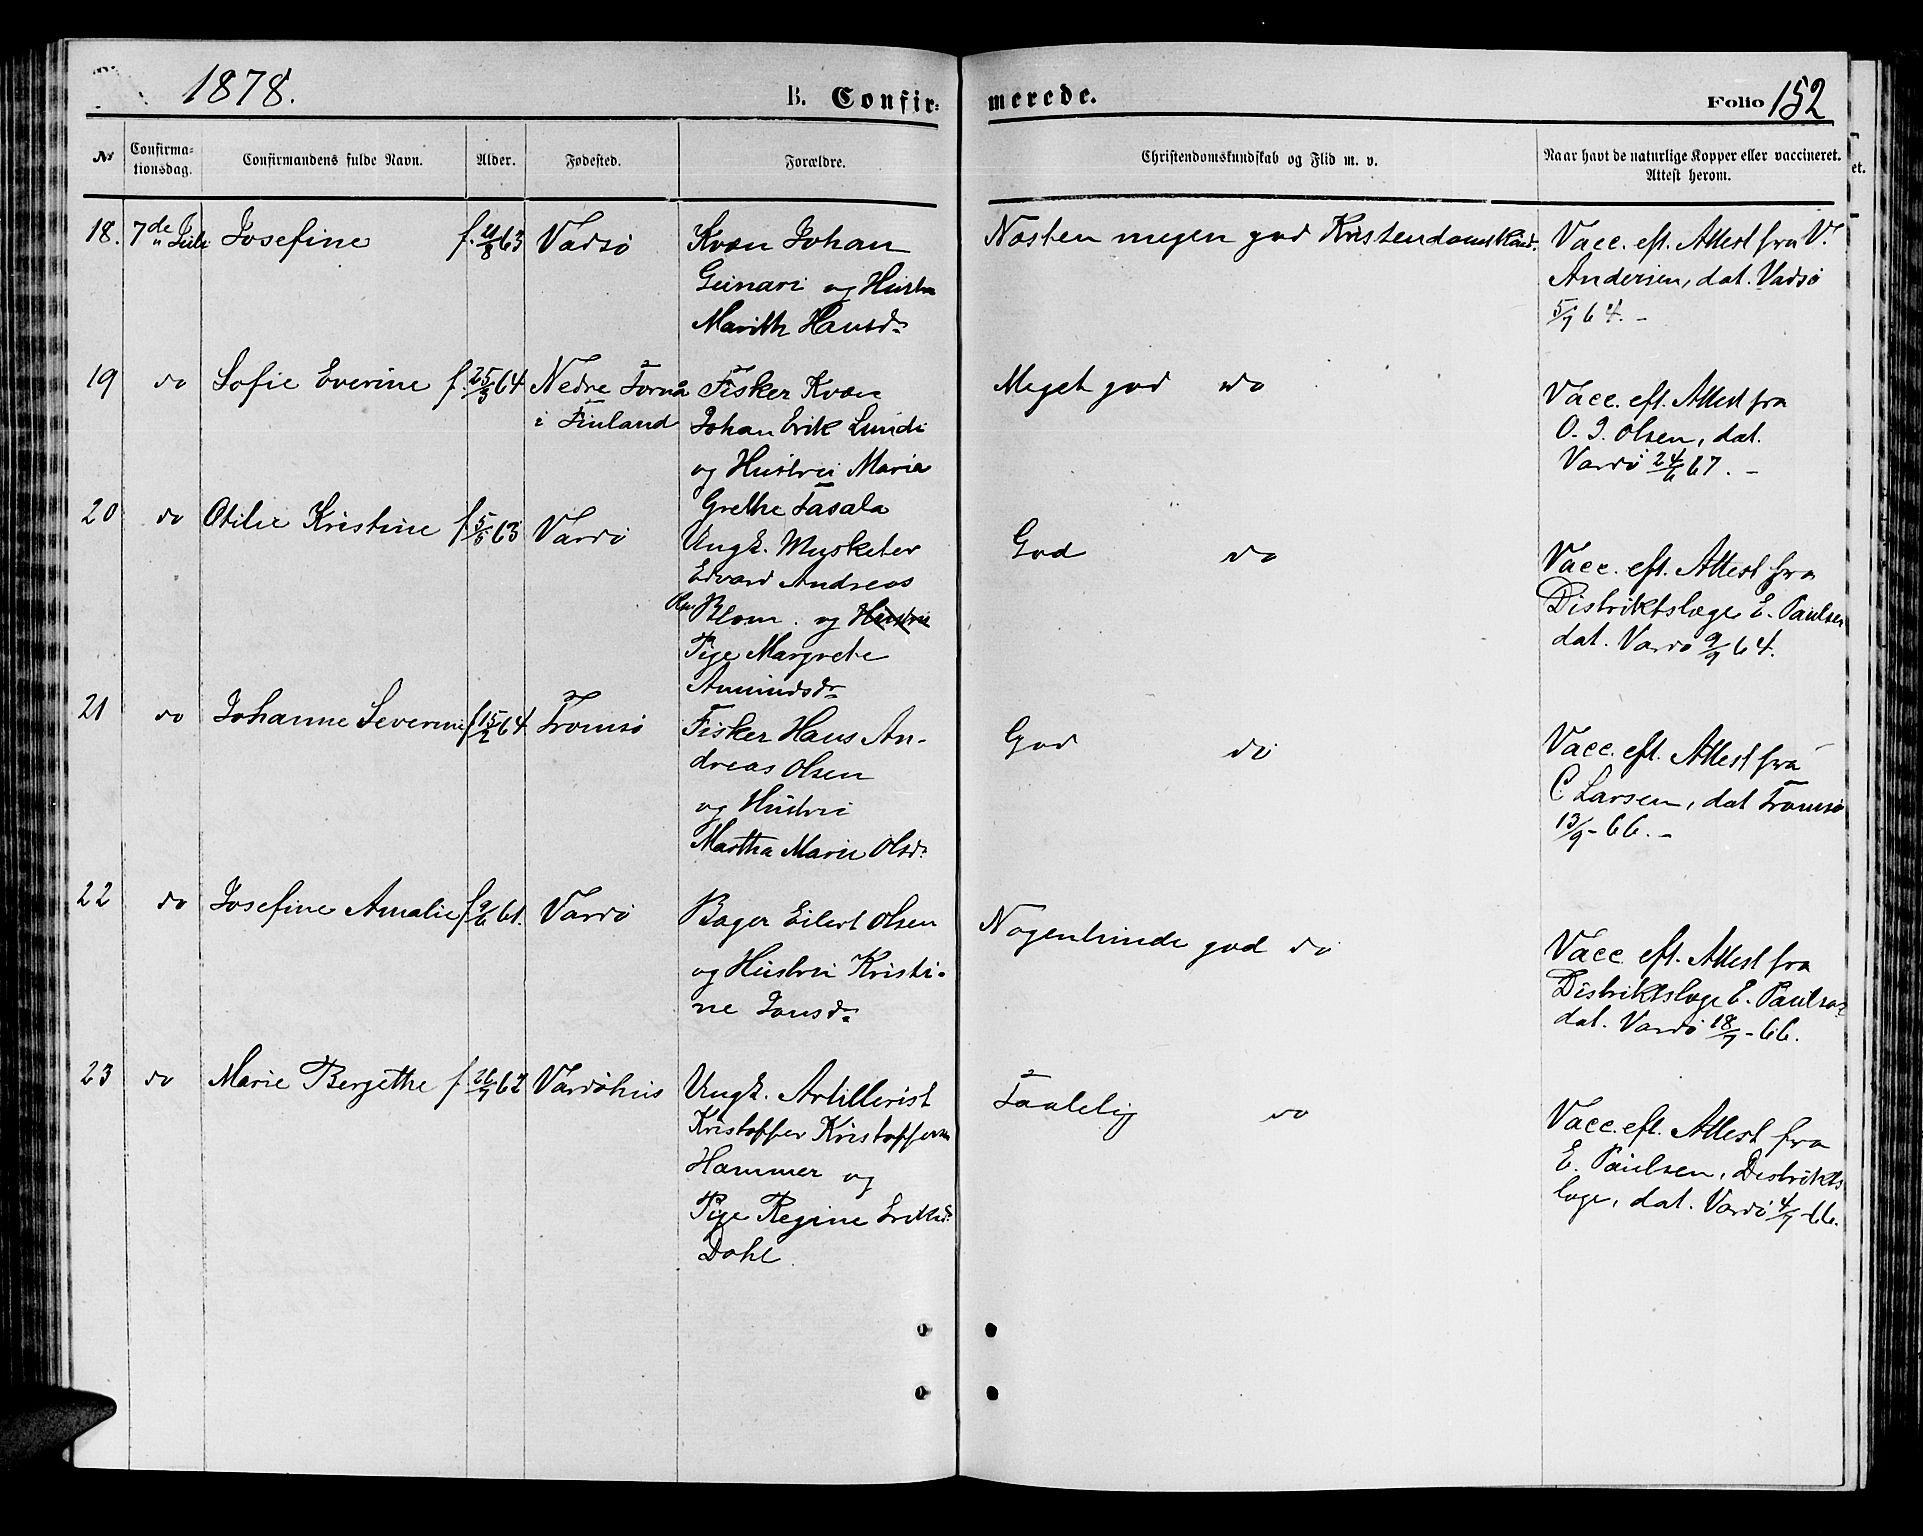 1878.
B. Confir-
merede.
Folio 152
№
Confirma-
tionsdag.
Confirmandens fulde Navn.
Alder.
Fødested.
Forældre.
Christendomskundskab og Flid m. v.
Naar havt de naturlige Kopper eller vaccineret.
Attest herom.
et.
18. 7de Juli Josefine f. 63 Vadsø
Kvæn Johan
og Hustru
Marith Hansdr
Næsten megen god Kristendomskund.
Vacc. eft. Attest fra V.
Andersen, dat. Vadsø
5/7 64. -
19 do Sofie Everine f. 25/3 64 Nedre Tornå
i Finland
Fisker Kvæn
Johan Erik Lundi
og Hustru Maria
Grethe Tasala
Meget god do
Vacc. eft. Attest fra
O. J. Olsen, dat.
Vardø 24/6 67. -
20 do Otilie Kristine f 5/5 63 Vardø
Ungk. Musketer
Edvard Andreas
Blom. og Hustru
Pige Margrete
Amundsdr
God do
Vacc. eft. Attest fra
Distriktslæge E. Paulsen
dat. Vardø 9/9 64.
21 do Johanne Severine f 15/2 64. Tromsø
Fisker Hans An-
dreas Olsen
og Hustru
Martha Marie Olsdr
God do
Vacc. eft. Attest fra
C. Larsen, dat Tromsø
13/9 - 66. -
22 do Josefine Amalie f 9/6 61. Vardø
Bager Eilert Olsen
og Hustru Kristi-
ne Jonsdr
Nogenlunde god do
Vacc. eft. Attest fra
Distriktslæge E. Paulsen
dat. Vardø 18/7 - 66.
23 do Marie Bergethe f. 26/7 62 Vardøhus
Ungk. Artillerist
Kristoffer Kristoffersen
Hammer og
Pige Regine Eriksdr
Dahl
Taalelig do
Vacc. eft. Attest fra
E. Paulsen, Distrikts
læge, dat. Vardø 4/7 - 66.